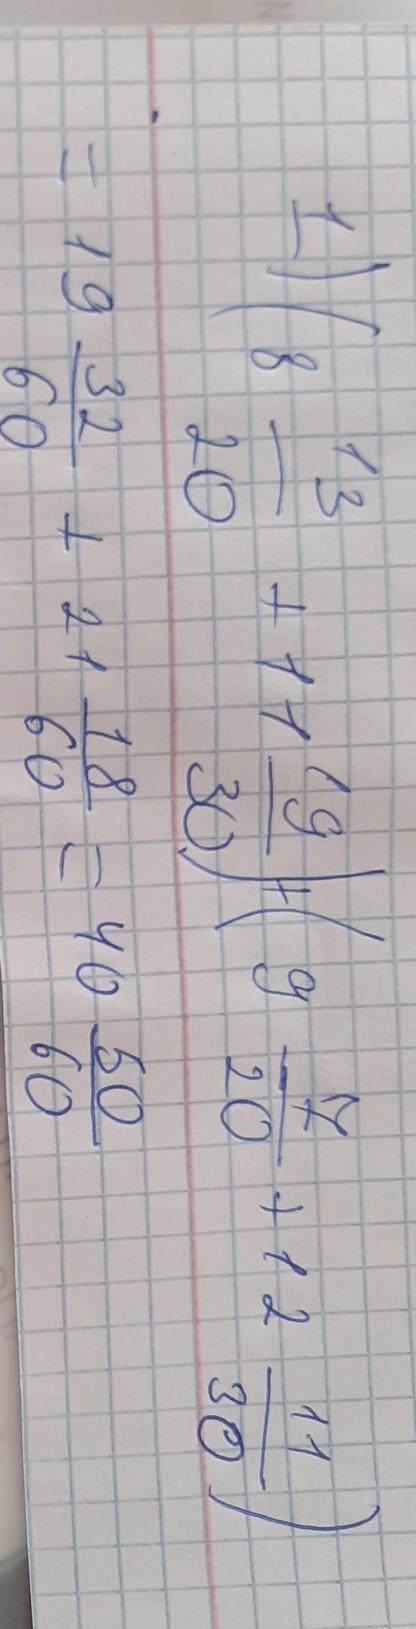 1) (8 13/20 + 11 19/30) + (9 7/20 + 12 11/30)
= 19 32/60 + 21 18/60 = 40 50/60